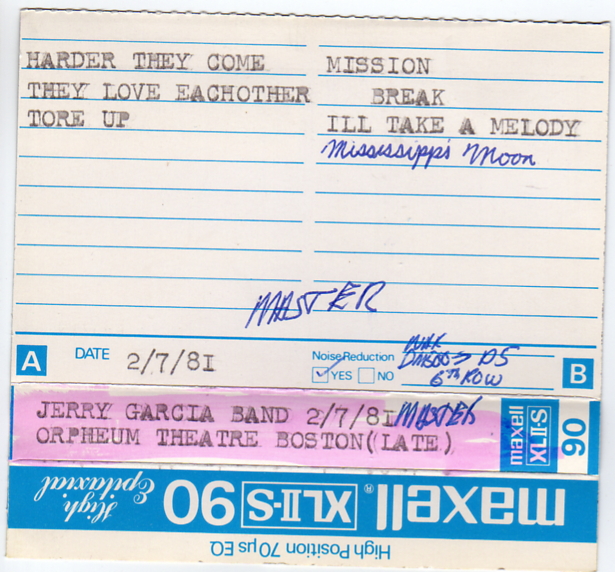 HARDER THEY COME
THEY LOVE EACHOTHER
TORE UP
MISSION
BREAK
ILL TAKE A MELODY
Mississippi Moon
MASTER
A
DATE 2/7/81
Noise Reduction
YES NO
NAK
→ D5
6th ROW
B
JERRY GARCIA BAND 2/7/81 MASTER
ORPHEUM THEATRE BOSTON(LATE)
maxell
XLII-S
90
maxell® XLII-S 90 High Epitaxial
High Position 70μs EQ